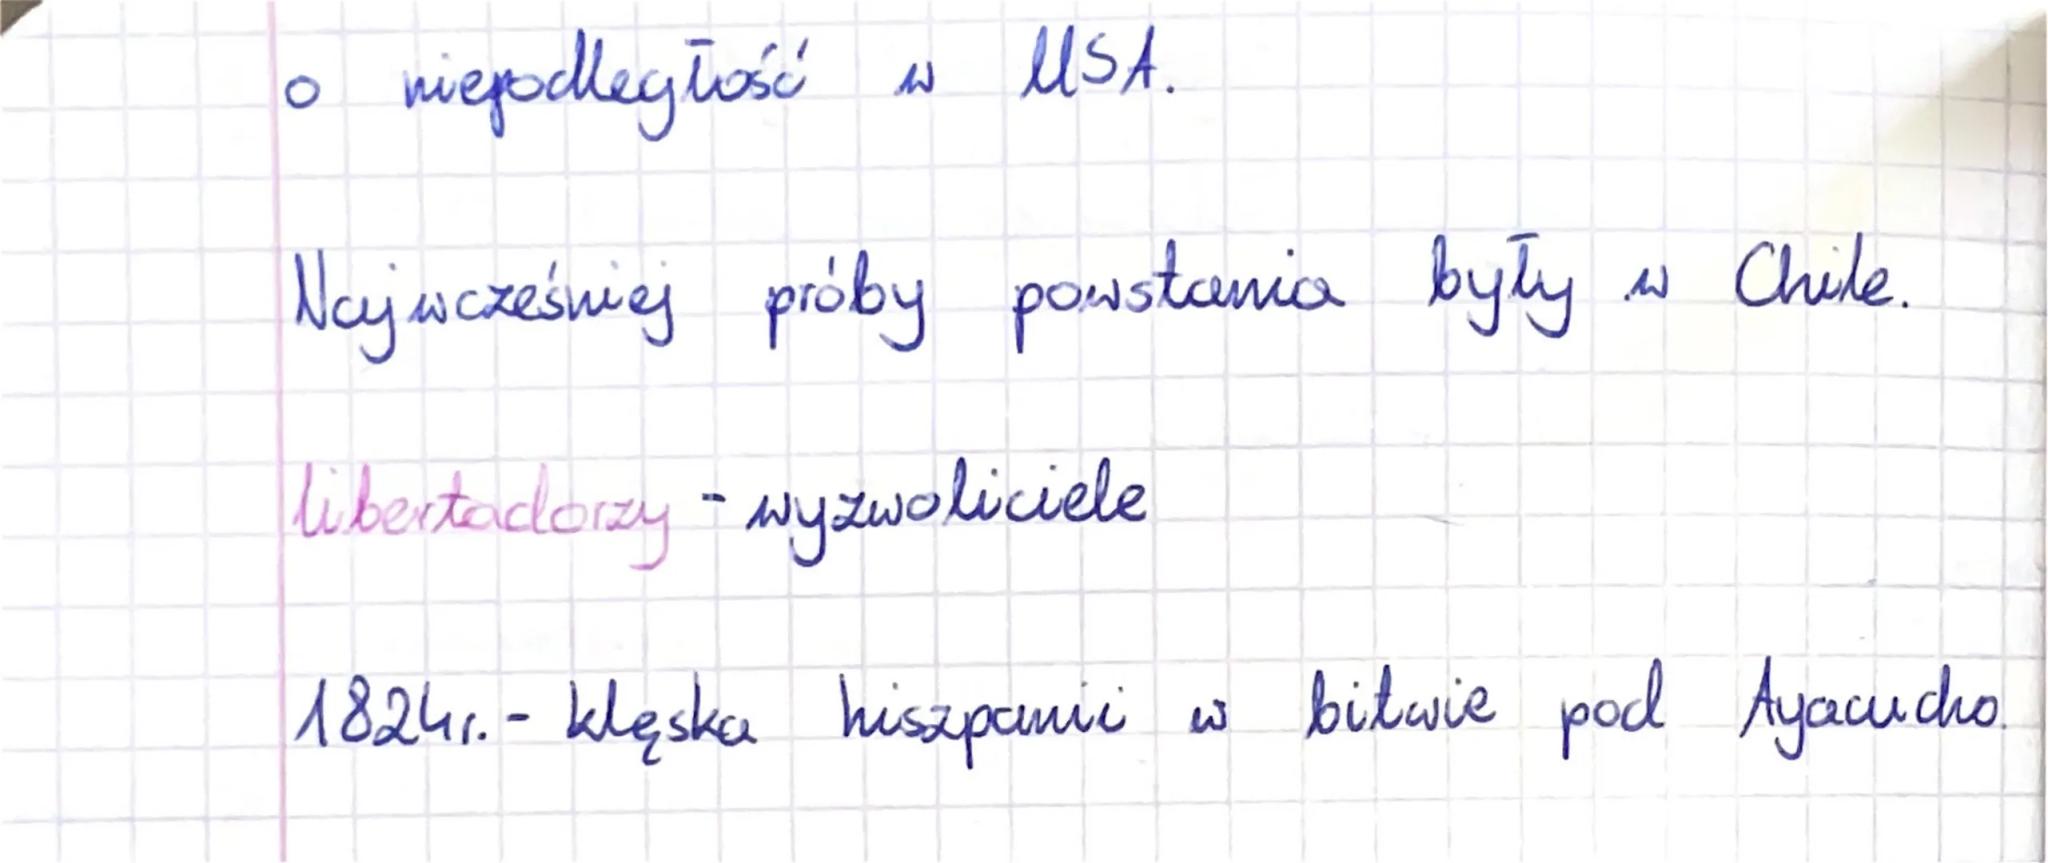 o niepodległość w USA.
Najwcześniej próby powstania były w Chile.
libertadorzy - wyzwoliciele
1824r. - klęska hiszpanii w bitwie pod Ayacucho.